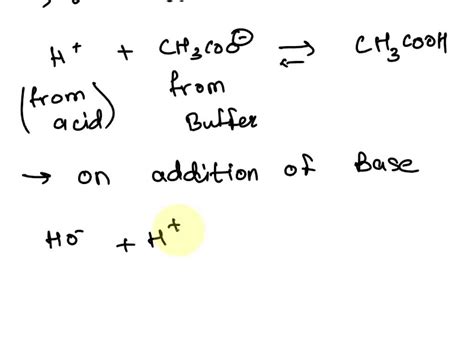 H⁺ + CH₃COO⊖ ⇌ CH₃COOH
(from acid) from Buffer
→ on addition of Base
HO⁻ + H⁺